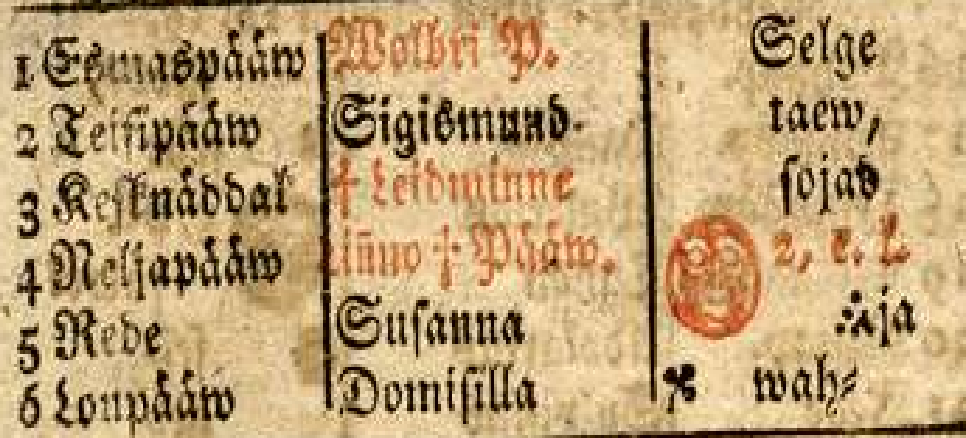 1 Esmaspääw Wolbri P. Selge
2 Teisipääw Sigismund. taew,
3 Kesknäddal † Leidminne sojad
4 Neljapääw † Pääw. 2, e. l.
5 Rede Susanna ja
6 Loupääw Domisilla wah⸗